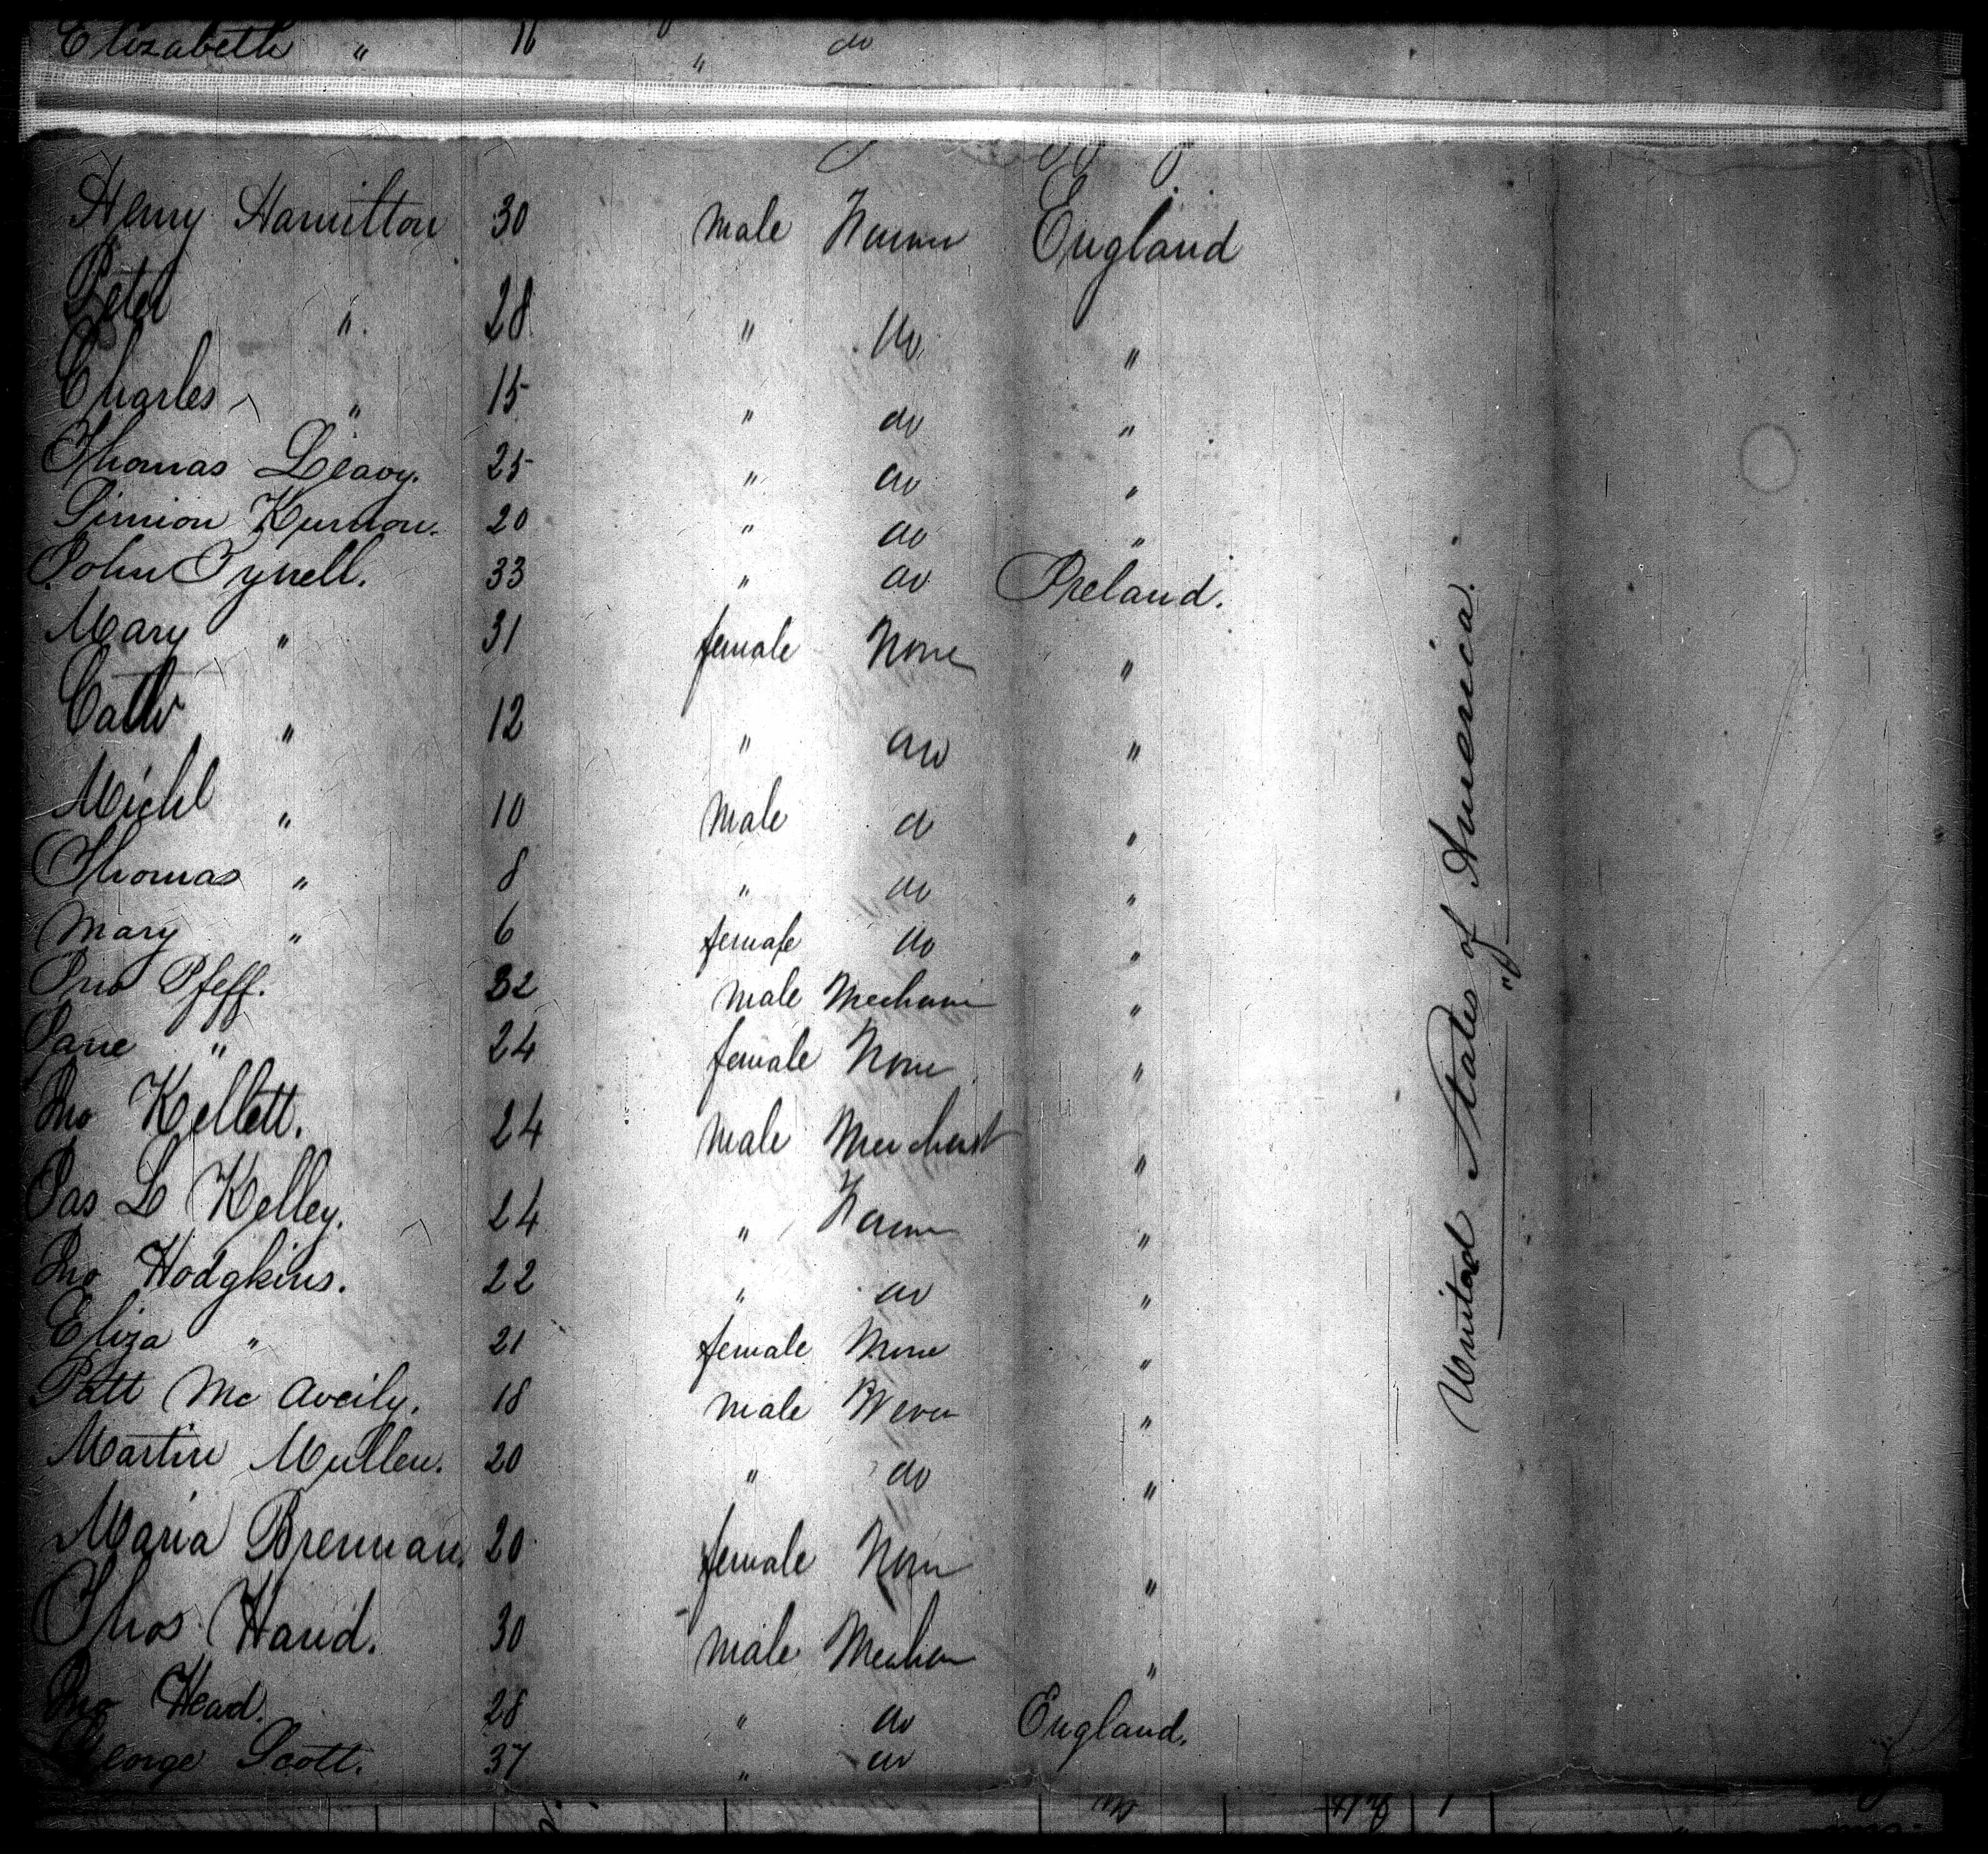 Elizabeth " 16 " do
Henry Hamilton 30 male Farmer England
Peter " 28 " do "
Charles " 15 " do "
Thomas Leavy. 25 " do "
Simion Kurnon. 20 " do "
John Tyrell. 33 " do Ireland.
Mary " 31 female None "
Cath " 12 " do "
Michl " 10 male d "
Thomas " 8 " do "
Mary " 6 female do "
Jno Pfeff. 32 male Mechanic "
Jane " 24 female None "
Jno Kellett. 24 male Merchant "
Jas L Kelley. 24 " Farmer "
Jno Hodgkins. 22 " do "
Eliza " 21 female None "
Patt Mc Aveily. 18 male "
Martin Mullen. 20 " do "
Maria Brennan. 20 female None "
Thos Hand. 30 male Mechan "
Jno Head. 28 " do England.
George Scott. 37 " do
United States of America.